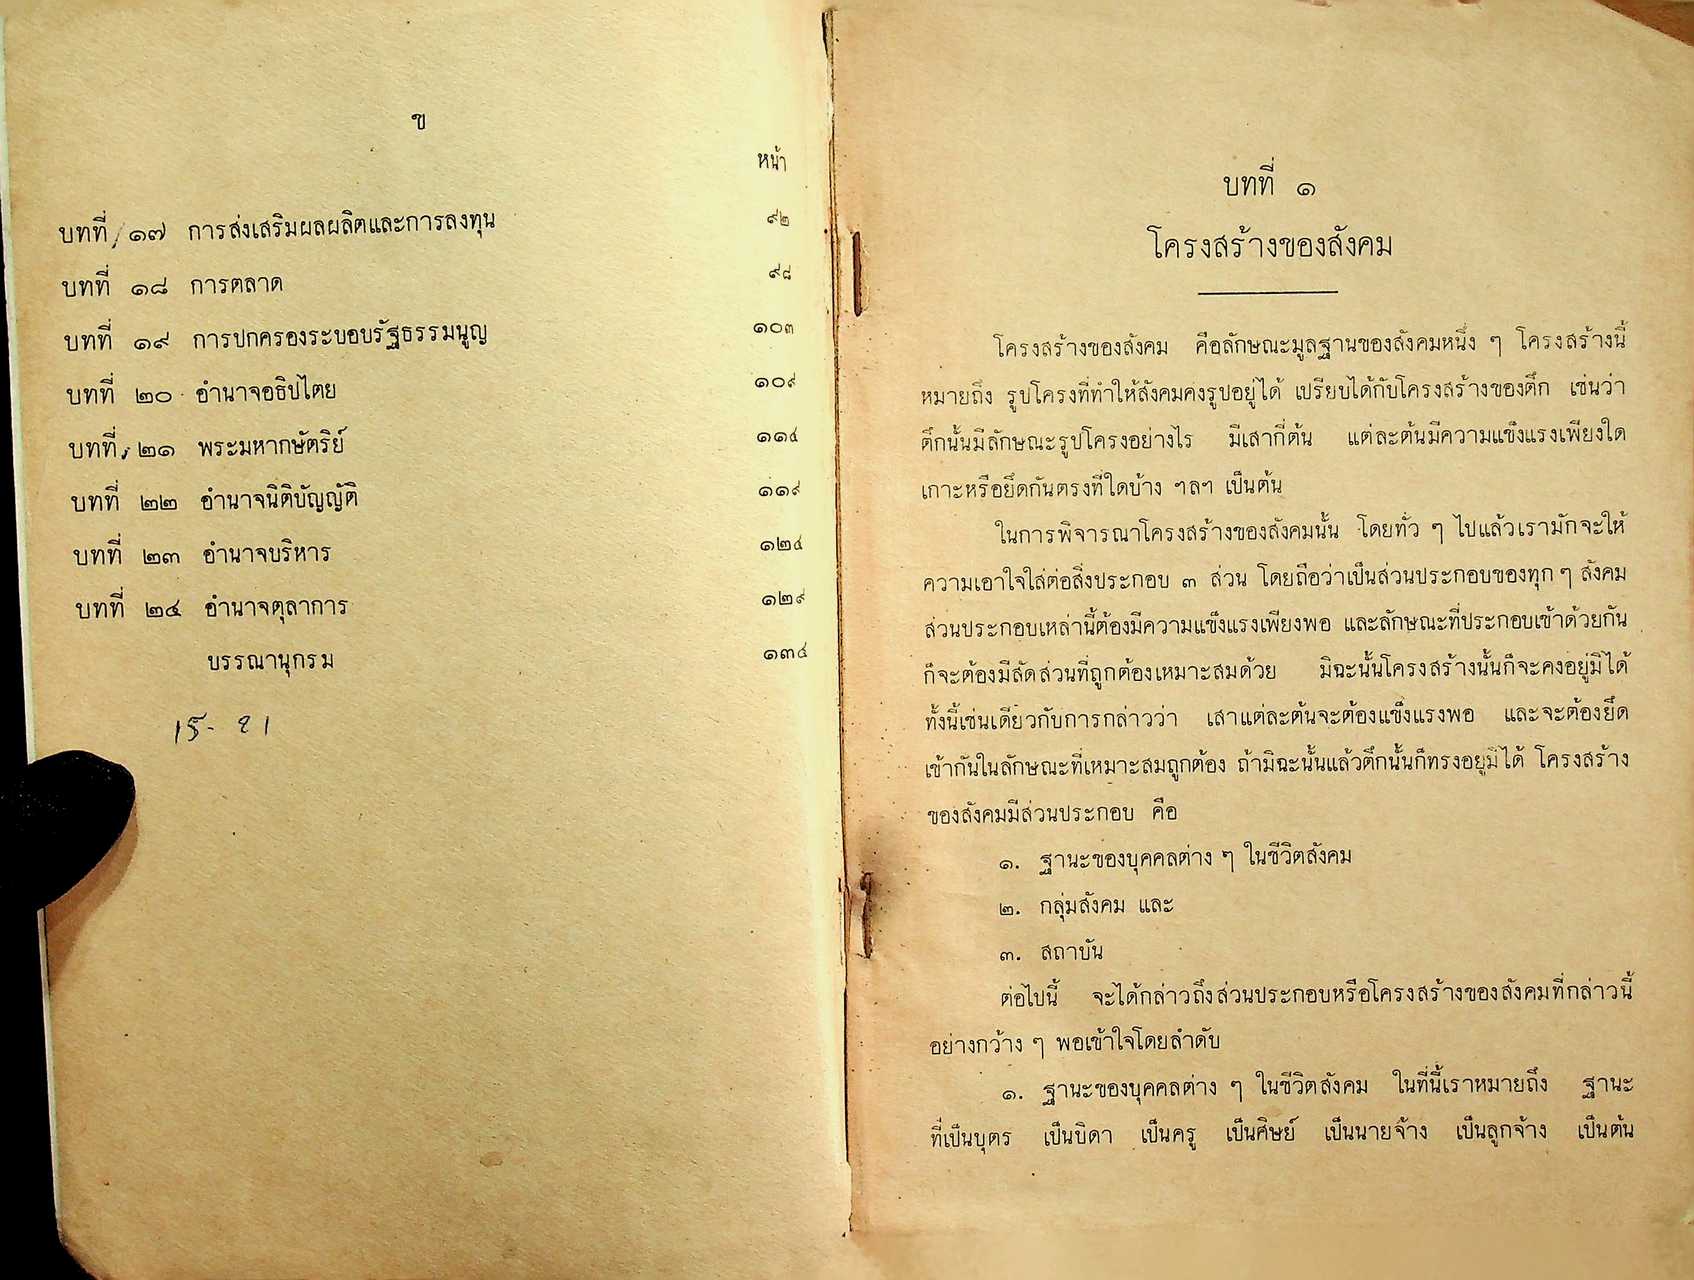 ข
หน้า
บทที่ ๑๗ การส่งเสริมผลผลิตและการลงทุน ๙๒
บทที่ ๑๘ การตลาด ๙๘
บทที่ ๑๙ การปกครองระบอบรัฐธรรมนูญ ๑๐๓
บทที่ ๒๐ อำนาจอธิปไตย ๑๐๙
บทที่ ๒๑ พระมหากษัตริย์ ๑๑๔
บทที่ ๒๒ อำนาจนิติบัญญัติ ๑๑๙
บทที่ ๒๓ อำนาจบริหาร ๑๒๔
บทที่ ๒๔ อำนาจตุลาการ ๑๒๙
บรรณานุกรม ๑๓๔
บทที่ ๑
โครงสร้างของสังคม
โครงสร้างของสังคม คือลักษณะมูลฐานของสังคมหนึ่ง ๆ โครงสร้างนี้
หมายถึง รูปโครงที่ทำให้สังคมคงรูปอยู่ได้ เปรียบได้กับโครงสร้างของตึก เช่นว่า
ตึกนั้นมีลักษณะรูปโครงอย่างไร มีเสากี่ต้น แต่ละต้นมีความแข็งแรงเพียงใด
เกาะหรือยึดกันตรงที่ใดบ้าง ฯลฯ เป็นต้น
ในการพิจารณาโครงสร้างของสังคมนั้น โดยทั่ว ๆ ไปแล้วเรามักจะให้
ความเอาใจใส่ต่อสิ่งประกอบ ๓ ส่วน โดยถือว่าเป็นส่วนประกอบของทุก ๆ สังคม
ส่วนประกอบเหล่านี้ต้องมีความแข็งแรงเพียงพอ และลักษณะที่ประกอบเข้าด้วยกัน
ก็จะต้องมีสัดส่วนที่ถูกต้องเหมาะสมด้วย มิฉะนั้นโครงสร้างนั้นก็จะคงอยู่มิได้
ทั้งนี้เช่นเดียวกับการกล่าวว่า เสาแต่ละต้นจะต้องแข็งแรงพอ และจะต้องยึด
เข้ากันในลักษณะที่เหมาะสมถูกต้อง ถ้ามิฉะนั้นแล้วตึกนั้นก็ทรงอยู่มิได้ โครงสร้าง
ของสังคมมีส่วนประกอบ คือ
๑. ฐานะของบุคคลต่าง ๆ ในชีวิตสังคม
๒. กลุ่มสังคม และ
๓. สถาบัน
ต่อไปนี้ จะได้กล่าวถึงส่วนประกอบหรือโครงสร้างของสังคมที่กล่าวนี้
อย่างกว้าง ๆ พอเข้าใจโดยลำดับ
๑. ฐานะของบุคคลต่าง ๆ ในชีวิตสังคม ในที่นี้เราหมายถึง ฐานะ
ที่เป็นบุตร เป็นบิดา เป็นครู เป็นศิษย์ เป็นนายจ้าง เป็นลูกจ้าง เป็นต้น